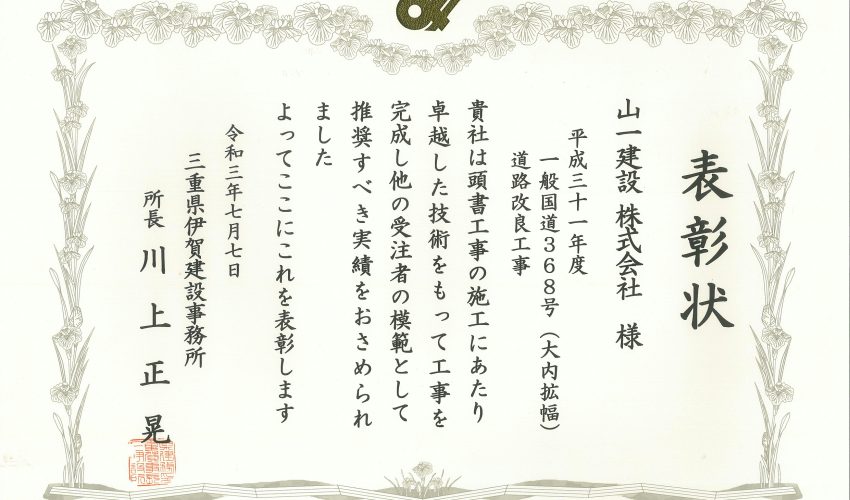 表彰状
山一建設 株式会社 様
平成三十一年度
一般国道368号(大内拡幅)
道路改良工事
貴社は頭書工事の施工にあたり
卓越した技術をもって工事を
完成し他の受注者の模範として
推奨すべき実績をおさめられ
ました
よってここにこれを表彰します
令和三年七月七日
三重県伊賀建設事務所
所長 川上正晃